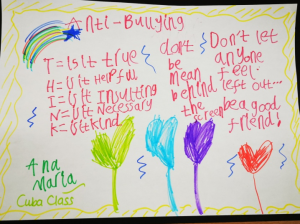 Anti-Bullying
T=is it true
H=is it Helpful
I=is it Insulting
N=is it Necessary
K=is it kind
don't
be
mean
behind
the
screen
Don't let
anyone
feel
left out...
be a good
friend!
Ana
Maria
Cuba Class